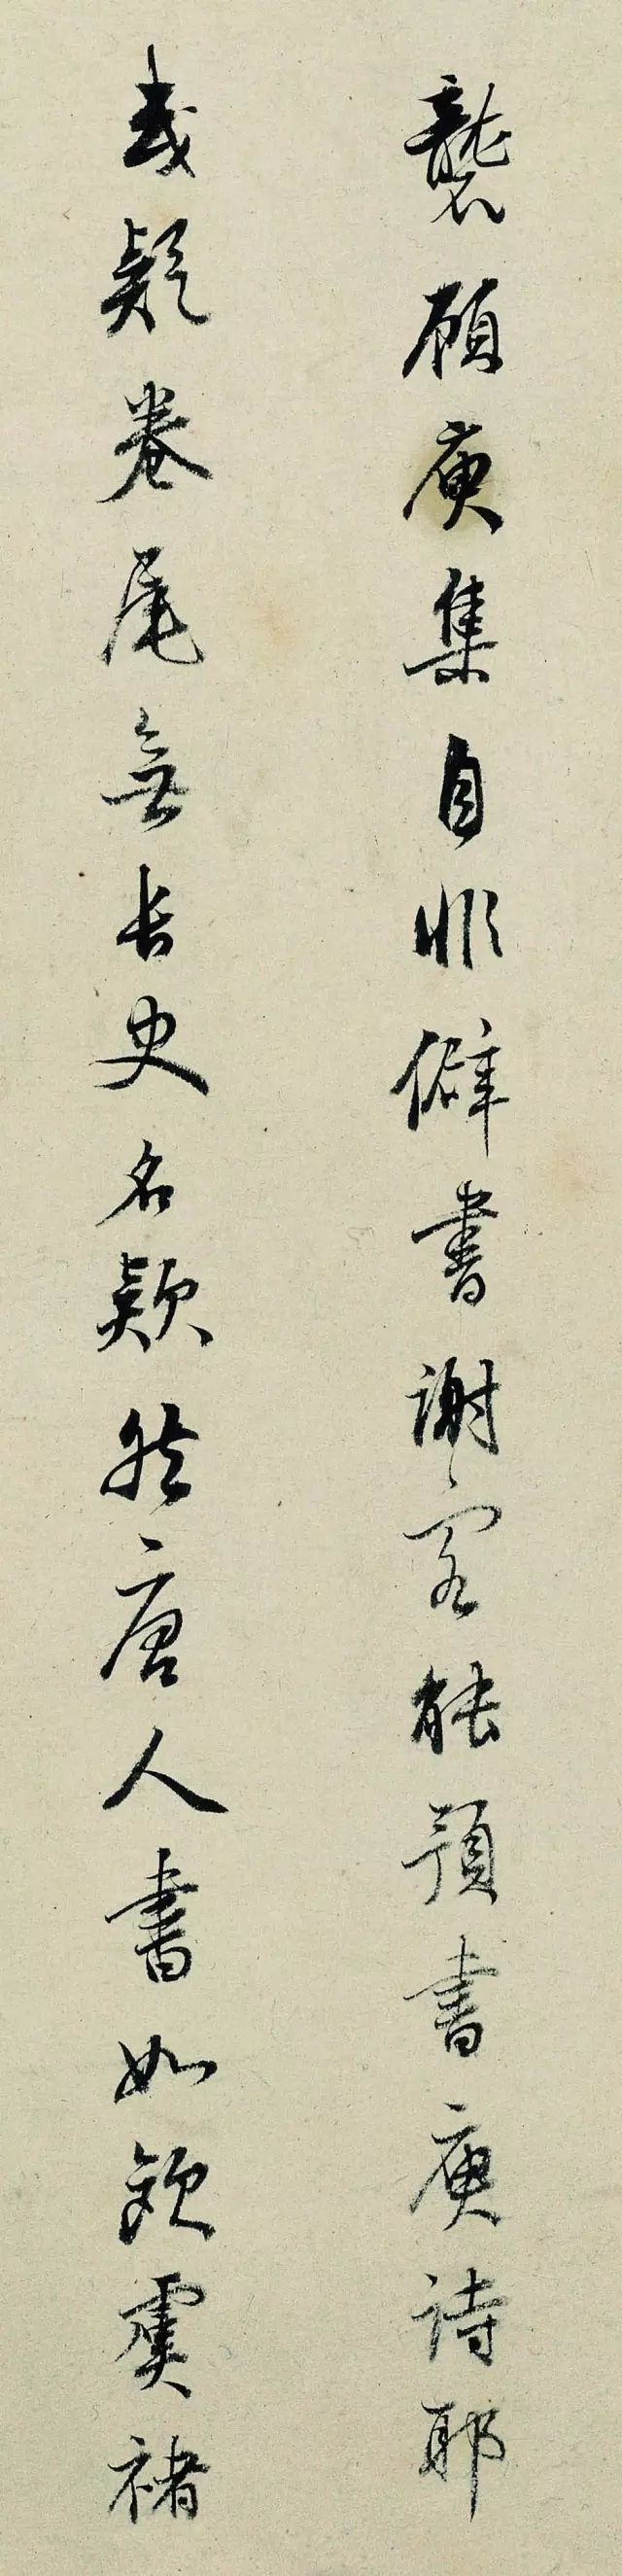 襲顧庾集自非僻書謝客能預書庾詩耶
或疑卷尾無長史名款然唐人書如歐虞褚